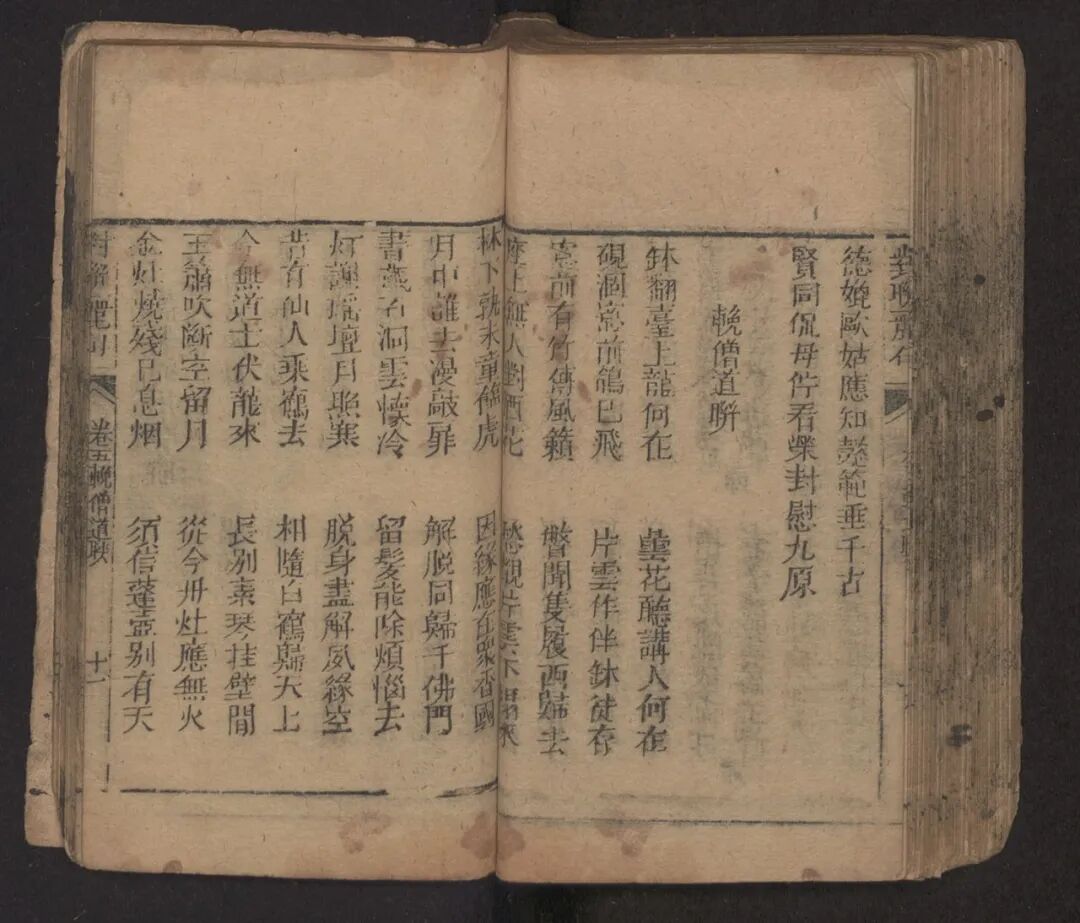 對聯
德媲歐姑應知懿範垂千古
賢同侃母佇看榮封慰九原
輓僧道聯
鉢翻臺上龍何在 曇花聽講人何在
硯涸窓前鴿已飛 片雲作伴鉢徒存
窓前有竹傳風籟 瞥聞隻履西歸去
座上無人對西花 愁觀片雲不出來
林下孰來重伏虎 因緣應在眾香國
月中誰去漫敲扉 解脫同歸千佛門
書藏石洞雲懷冷 留髮能除煩惱去
灯護瑤壇月照寒 脫身盡解夙緣空
昔有仙人乘鶴去 相隨白鶴歸天上
今無道士伏龍來 長別素琴挂壁間
玉簫吹斷空留月 從今丹灶應無火
金灶燒殘已息烟 須信蓬壺別有天
卷五輓僧道聯
十一